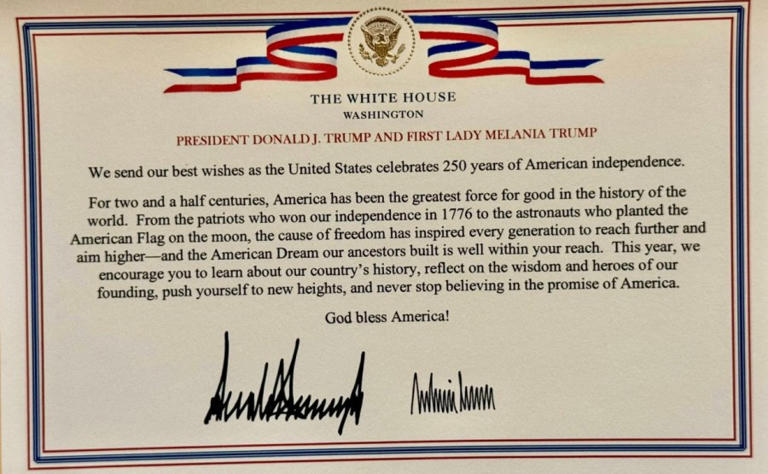 THE WHITE HOUSE
WASHINGTON
PRESIDENT DONALD J. TRUMP AND FIRST LADY MELANIA TRUMP
We send our best wishes as the United States celebrates 250 years of American independence.
For two and a half centuries, America has been the greatest force for good in the history of the
world. From the patriots who won our independence in 1776 to the astronauts who planted the
American Flag on the moon, the cause of freedom has inspired every generation to reach further and
aim higher—and the American Dream our ancestors built is well within your reach. This year, we
encourage you to learn about our country's history, reflect on the wisdom and heroes of our
founding, push yourself to new heights, and never stop believing in the promise of America.
God bless America!